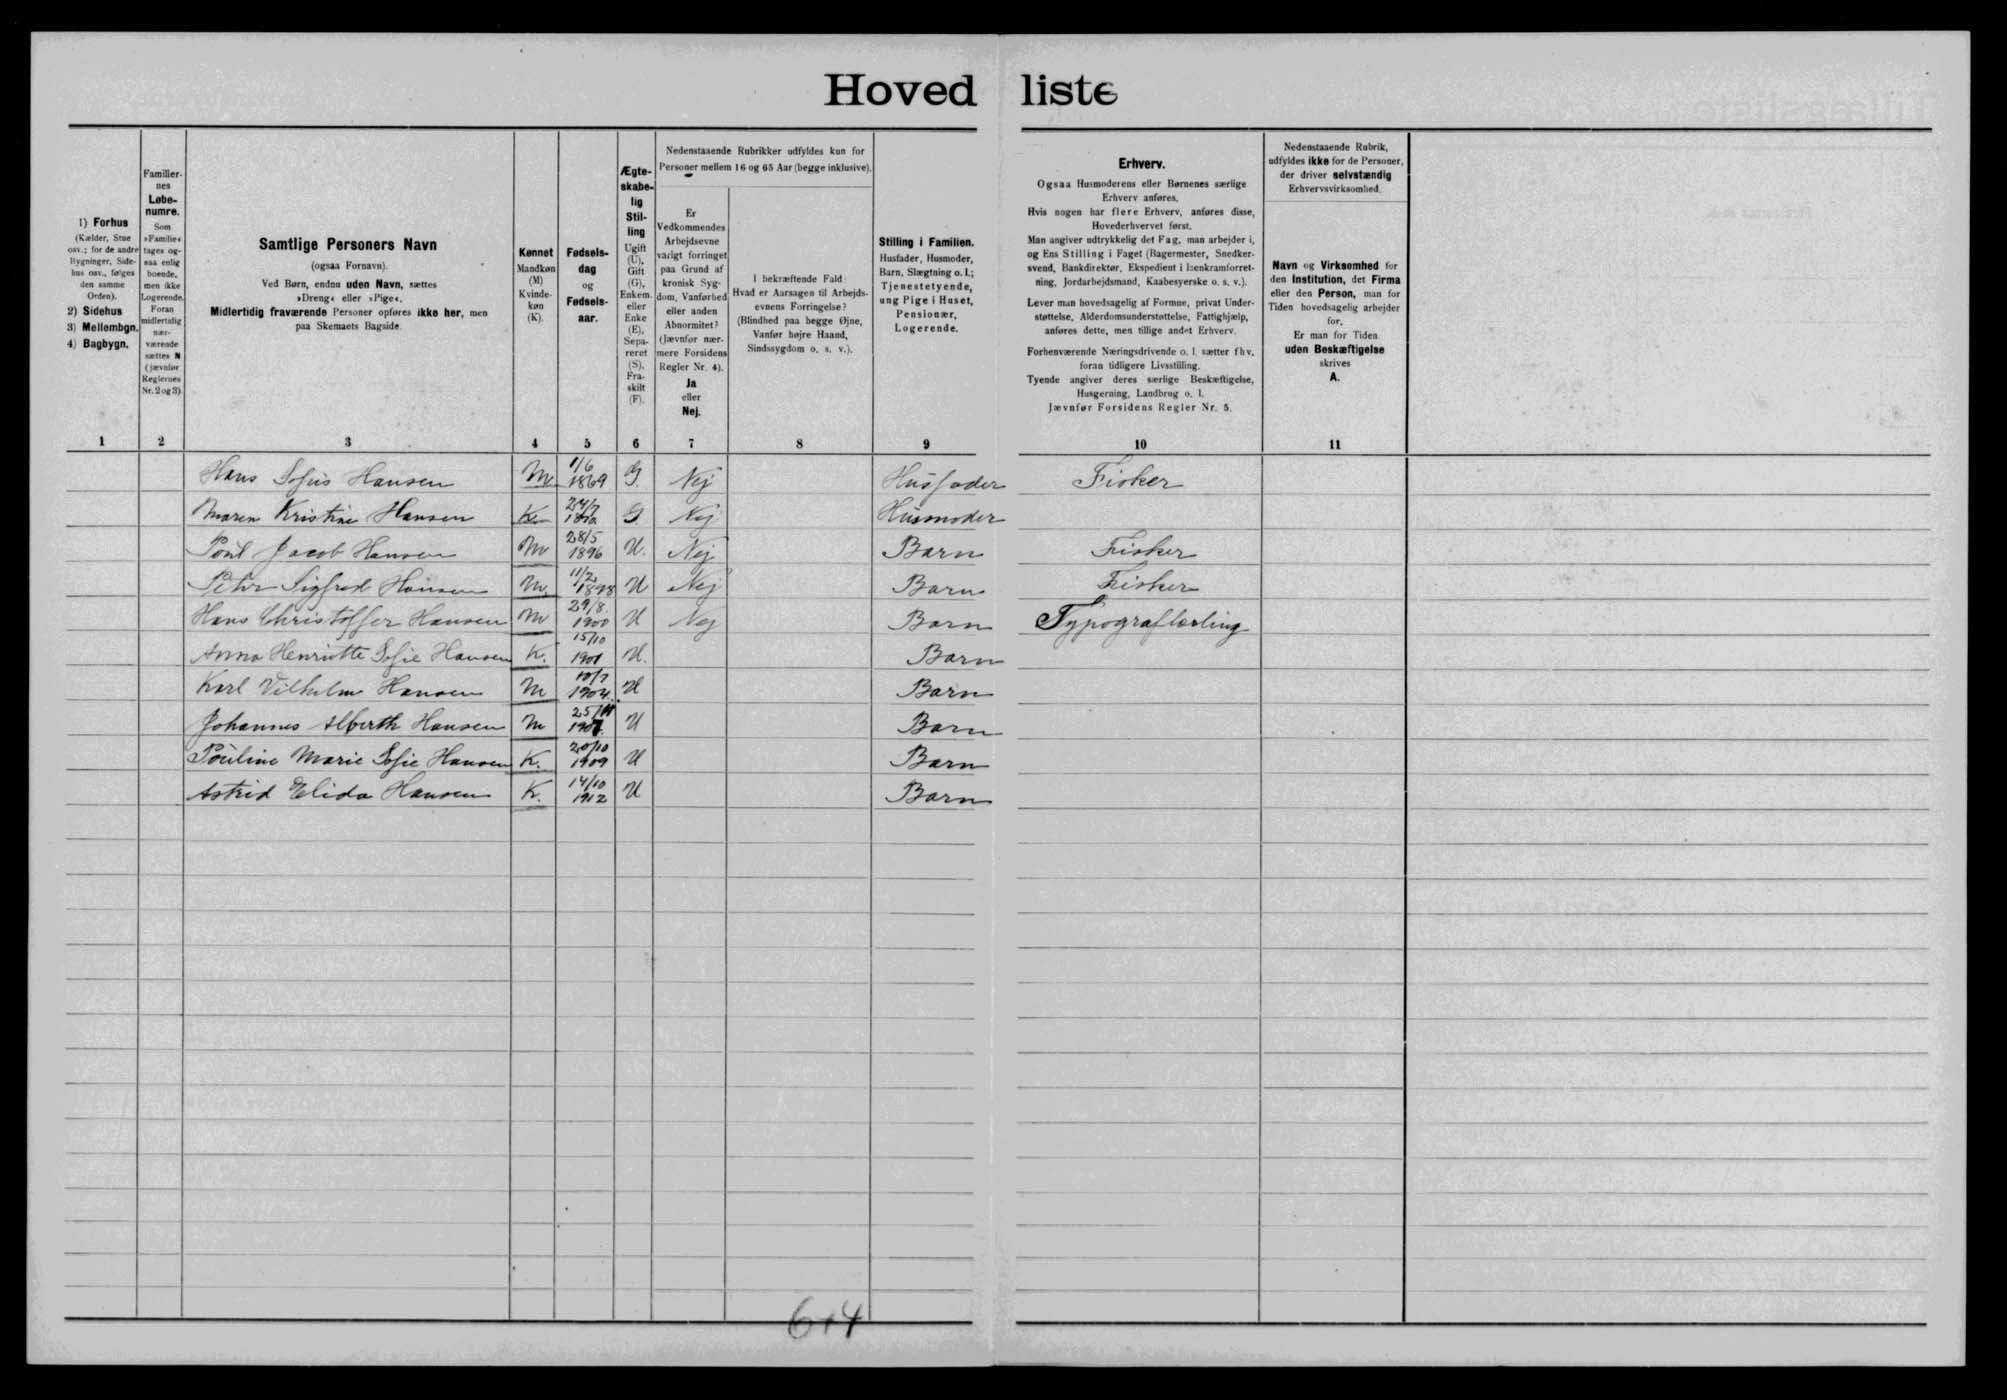 Hovedliste
1) Forhus
(Kælder, Stue
osv.; for de andre
Bygninger, Side-
hus osv., følges
den samme
Orden).
2) Sidehus
3) Mellembgn.
4) Bagbygn.
Familier-
nes
Løbe-
numre.
Som
»Familie«
tages og-
saa enlig
boende,
men ikke
Logerende.
Foran
midlertidig
nær-
værende
sættes N
(jævnfør
Reglernes
Nr. 2 og 3)
Samtlige Personers Navn
(ogsaa Fornavn).
Ved Børn, endnu uden Navn, sættes
»Dreng« eller »Pige«.
Midlertidig fraværende Personer opføres ikke her, men
paa Skemaets Bagside.
Kønnet
Mandkøn
(M)
Kvinde-
køn
(K).
Fødsels-
dag
og
Fødsels-
aar.
Ægte-
skabe-
lig
Stil-
ling
Ugift
(U),
Gift
(G),
Enkem.
eller
Enke
(E),
Sepa-
reret
(S),
Fra-
skilt
(F).
Nedenstaaende Rubrikker udfyldes kun for
Personer mellem 16 og 65 Aar (begge inklusive).
Er
Vedkommendes
Arbejdsevne
varigt forringet
paa Grund af
kronisk Syg-
dom, Vanførhed
eller anden
Abnormitet?
(Jævnfør nær-
mere Forsidens
Regler Nr. 4).
Ja
eller
Nej.
I bekræftende Fald:
Hvad er Aarsagen til Arbejds-
evnens Forringelse?
(Blindhed paa begge Øjne,
Vanfør højre Haand,
Sindssygdom o. s. v.).
Stilling i Familien.
Husfader, Husmoder,
Barn, Slægtning o. l.;
Tjenestetyende,
ung Pige i Huset,
Pensionær,
Logerende.
Erhverv.
Ogsaa Husmoderens eller Børnenes særlige
Erhverv anføres.
Hvis nogen har flere Erhverv, anføres disse,
Hovederhvervet først.
Man angiver udtrykkelig det Fag, man arbejder i,
og Ens Stilling i Faget (Bagermester, Snedker-
svend, Bankdirektør, Ekspedient i Isenkramforret-
ning, Jordarbejdsmand, Kaabesyerske o. s. v.).
Lever man hovedsagelig af Formue, privat Under-
støttelse, Alderdomsunderstøttelse, Fattighjælp,
anføres dette, men tillige andet Erhverv.
Forhenværende Næringsdrivende o. l. sætter fhv.
foran tidligere Livsstilling.
Tyende angiver deres særlige Beskæftigelse,
Husgerning, Landbrug o. l.
Jævnfør Forsidens Regler Nr. 5.
Nedenstaaende Rubrik,
udfyldes ikke for de Personer,
der driver selvstændig
Erhvervsvirksomhed.
Navn og Virksomhed for
den Institution, det Firma
eller den Person, man for
Tiden hovedsagelig arbejder
for,
Er man for Tiden
uden Beskæftigelse
skrives
A.
1 2 3 4 5 6 7 8 9 10 11
Hans Sofus Hansen M 1/6 1869 G. Nej Husfader Fisker
Maren Kristine Hansen K 24/7 1870 G Nej Husmoder
Poul Jacob Hansen M 28/5 1896 U. Nej Barn Fisker
Peter Sigfred Hansen M. 11/2 1898 U Nej Barn Fisker
Hans Christoffer Hansen M 29/8. 1900 U Nej Barn Typograflærling
Anna Henriette Sofie Hansen K. 15/10 1901 U. Barn
Karl Vilhelm Hansen M 10/7 1904. U Barn
Johannes Alberth Hansen M 25/11 1907. U Barn
Pouline Marie Sofie Hansen K. 20/10 1909 U Barn
Astrid Elida Hansen K. 14/10 1912 U Barn
6+4